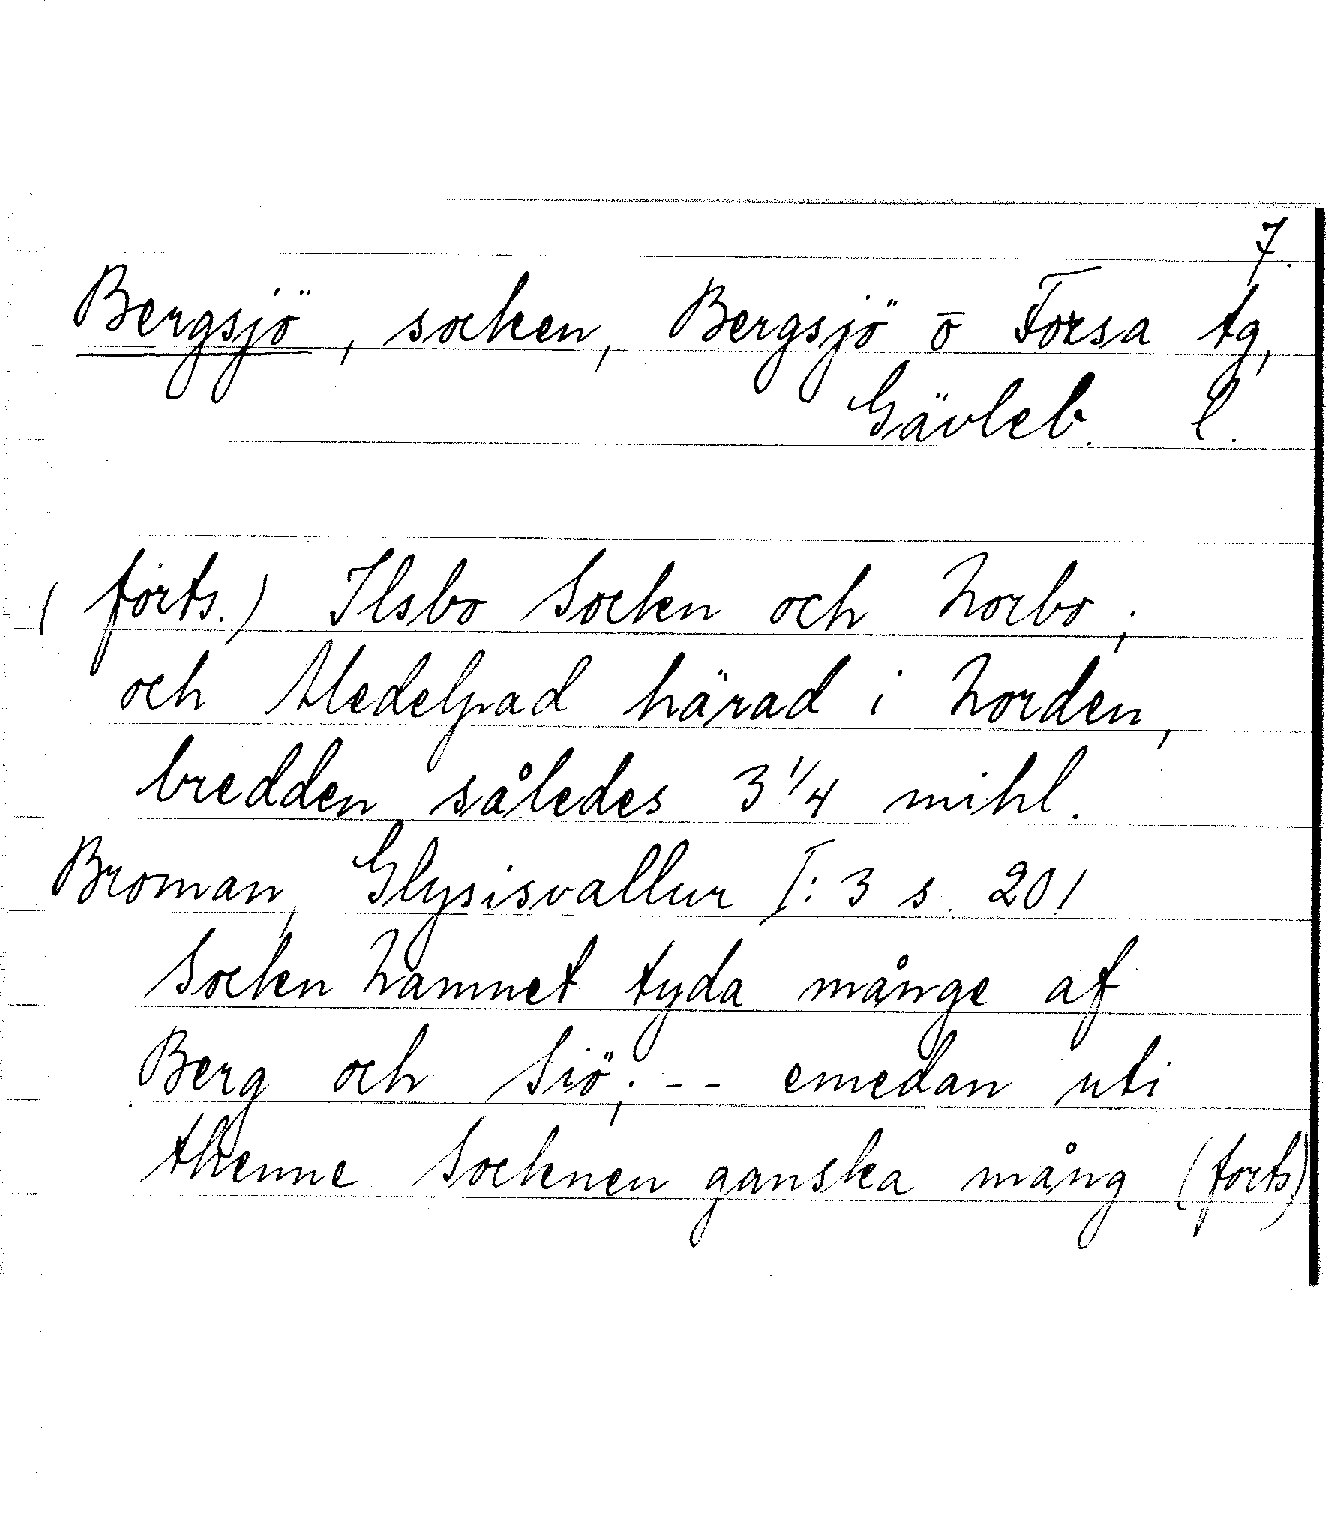 7.
Bergsjö, socken, Bergsjö o Forsa tg,
Gävleb. l.
(forts.) Ilsbo Sockn och Norbo;
och Medelpad härad i Norden,
bredden således 3 1/4 mihl.
Broman, Glysisvallur I:3 s. 201
Sockn Namnet tyda månge af
Berg och Siö; -- emedan uti
thenne Socknen ganska mång (forts)